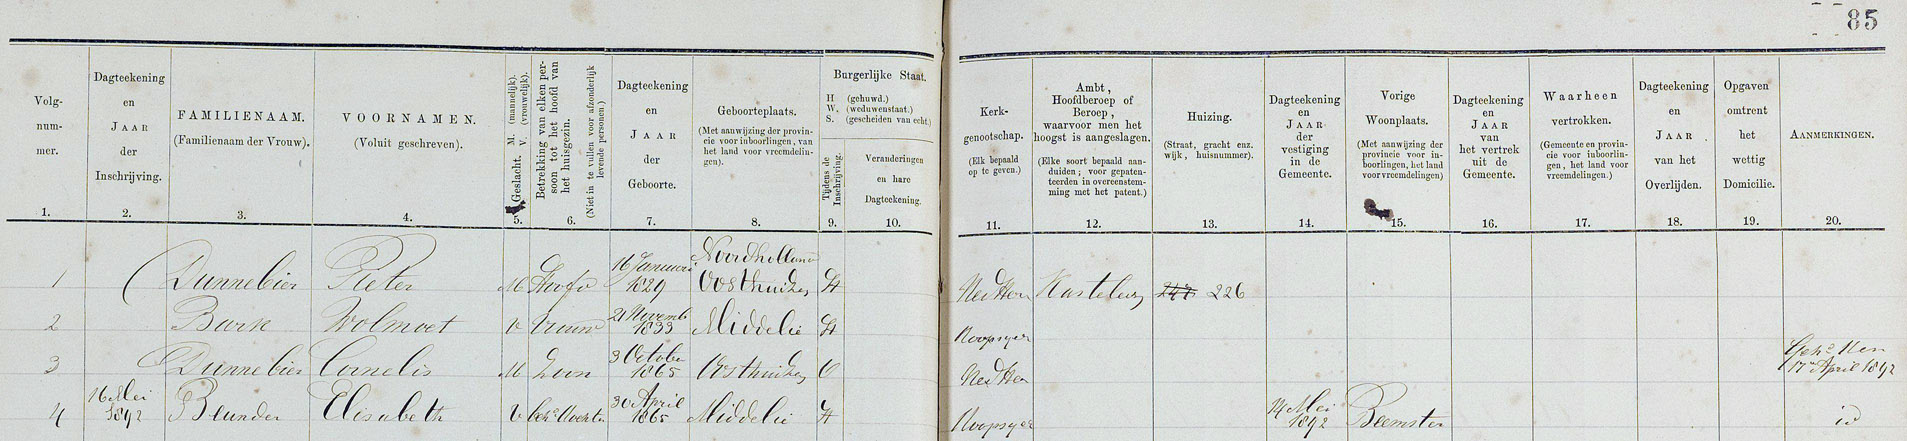 85
Volg-
num-
mer.
Dagteekening
en
JAAR
der
Inschrijving.
FAMILIENAAM.
(Familienaam der Vrouw).
VOORNAMEN.
(Voluit geschreven).
Geslacht. M. (mannelijk).
V. (vrouwelijk).
Betrekking van elken per-
soon tot het hoofd van
het huisgezin.
(Niet in te vullen voor afzonderlijk
levende personen.)
Dagteekening
en
JAAR
der
Geboorte.
Geboorteplaats.
(Met aanwijzing der provin-
cie voor inboorlingen, van
het land voor vreemdelin-
gen).
Burgerlijke Staat.
H (gehuwd.)
W. (weduwenstaat.)
S. (gescheiden van echt.)
Tijdens de
Inschrijving.
Veranderingen
en hare
Dagteekening.
Kerk-
genootschap.
(Elk bepaald
op te geven.)
Ambt,
Hoofdberoep of
Beroep,
waarvoor men het
hoogst is aangeslagen.
(Elke soort bepaald aan-
duiden; voor gepaten-
teerden in overeenstem-
ming met het patent.)
Huizing.
(Straat, gracht enz.
wijk, huisnummer).
Dagteekening
en
JAAR
der
vestiging
in de
Gemeente.
Vorige
Woonplaats.
(Met aanwijzing der
provincie voor in-
boorlingen, het land
voor vreemdelingen)
Dagteekening
en
JAAR
van
het vertrek
uit de
Gemeente.
Waarheen
vertrokken.
(Gemeente en provin-
cie voor inboorlin-
gen, het land voor
vreemdelingen.)
Dagteekening
en
JAAR
van het
Overlijden.
Opgaven
omtrent
het
wettig
Domicilie.
AANMERKINGEN.
1. 2. 3. 4. 5. 6. 7. 8. 9. 10. 11. 12. 13. 14. 15. 16. 17. 18. 19. 20.
16 Januari Noordholland
1 Dunnebier Pieter M Hoofd 1829 Oosthuizen H Ned Her Kastelein 247 226
21 Novemb
2 Bark Wolmoet V Vrouw 1833 Middelie H Doopsgez
3 October
3 Dunnebier Cornelis M Zoon 1865 Oosthuizen O Ned Her
17 April 1892
16 Mei 30 April 14 Mei
4 1892 Blunder Elisabeth V 1865 Middelie H Doopsgez 1892 Beemster id